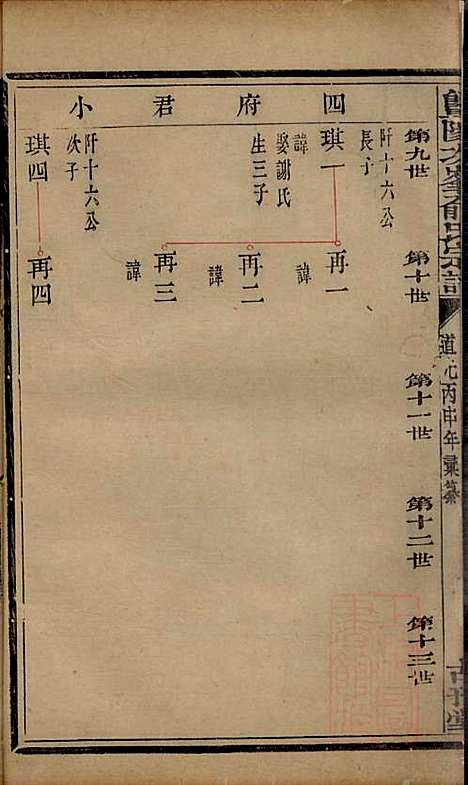 道光丙申年彙纂
第九世
第十世
第十一世
第十二世
第十三世
四府君小
阡十六公
長子
琪一
諱
娶謝氏
生三子
再一
諱
再二
諱
再三
諱
阡十六公
次子
琪四
再四